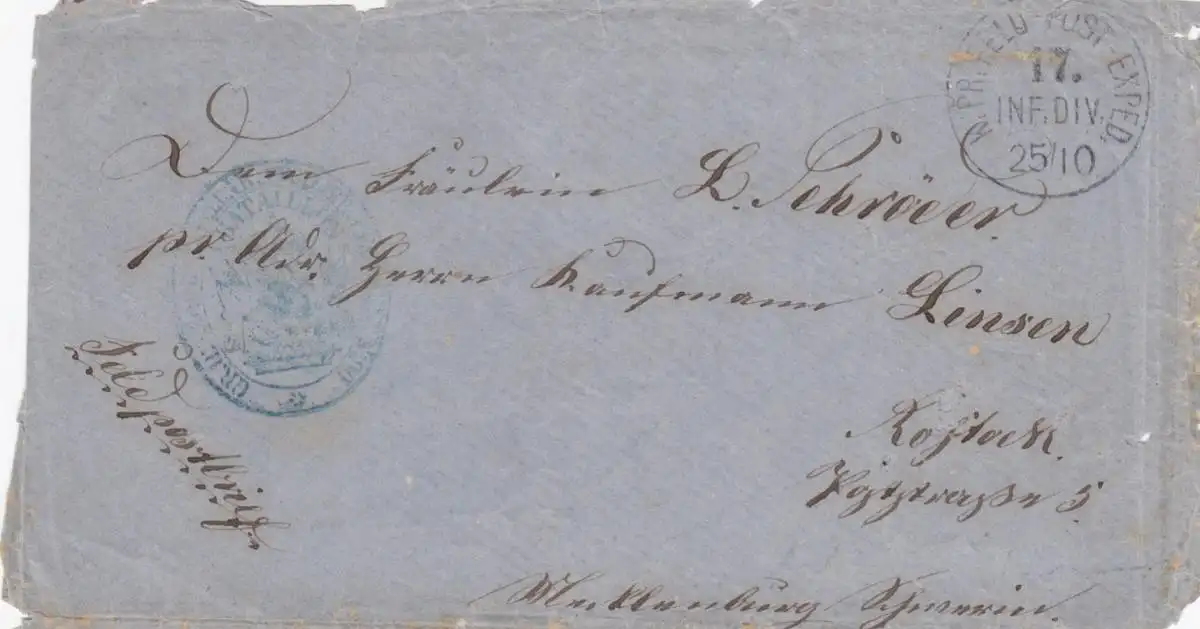 K. PR. FELD-POST-EXPED.
17.
INF. DIV.
25/10
Dem Fräulein L. Schröder.
pr. Adr. Herrn Kaufmann Linsen
Feldpostbrief.
Rostock.
5
Mecklenburg Schwerin.